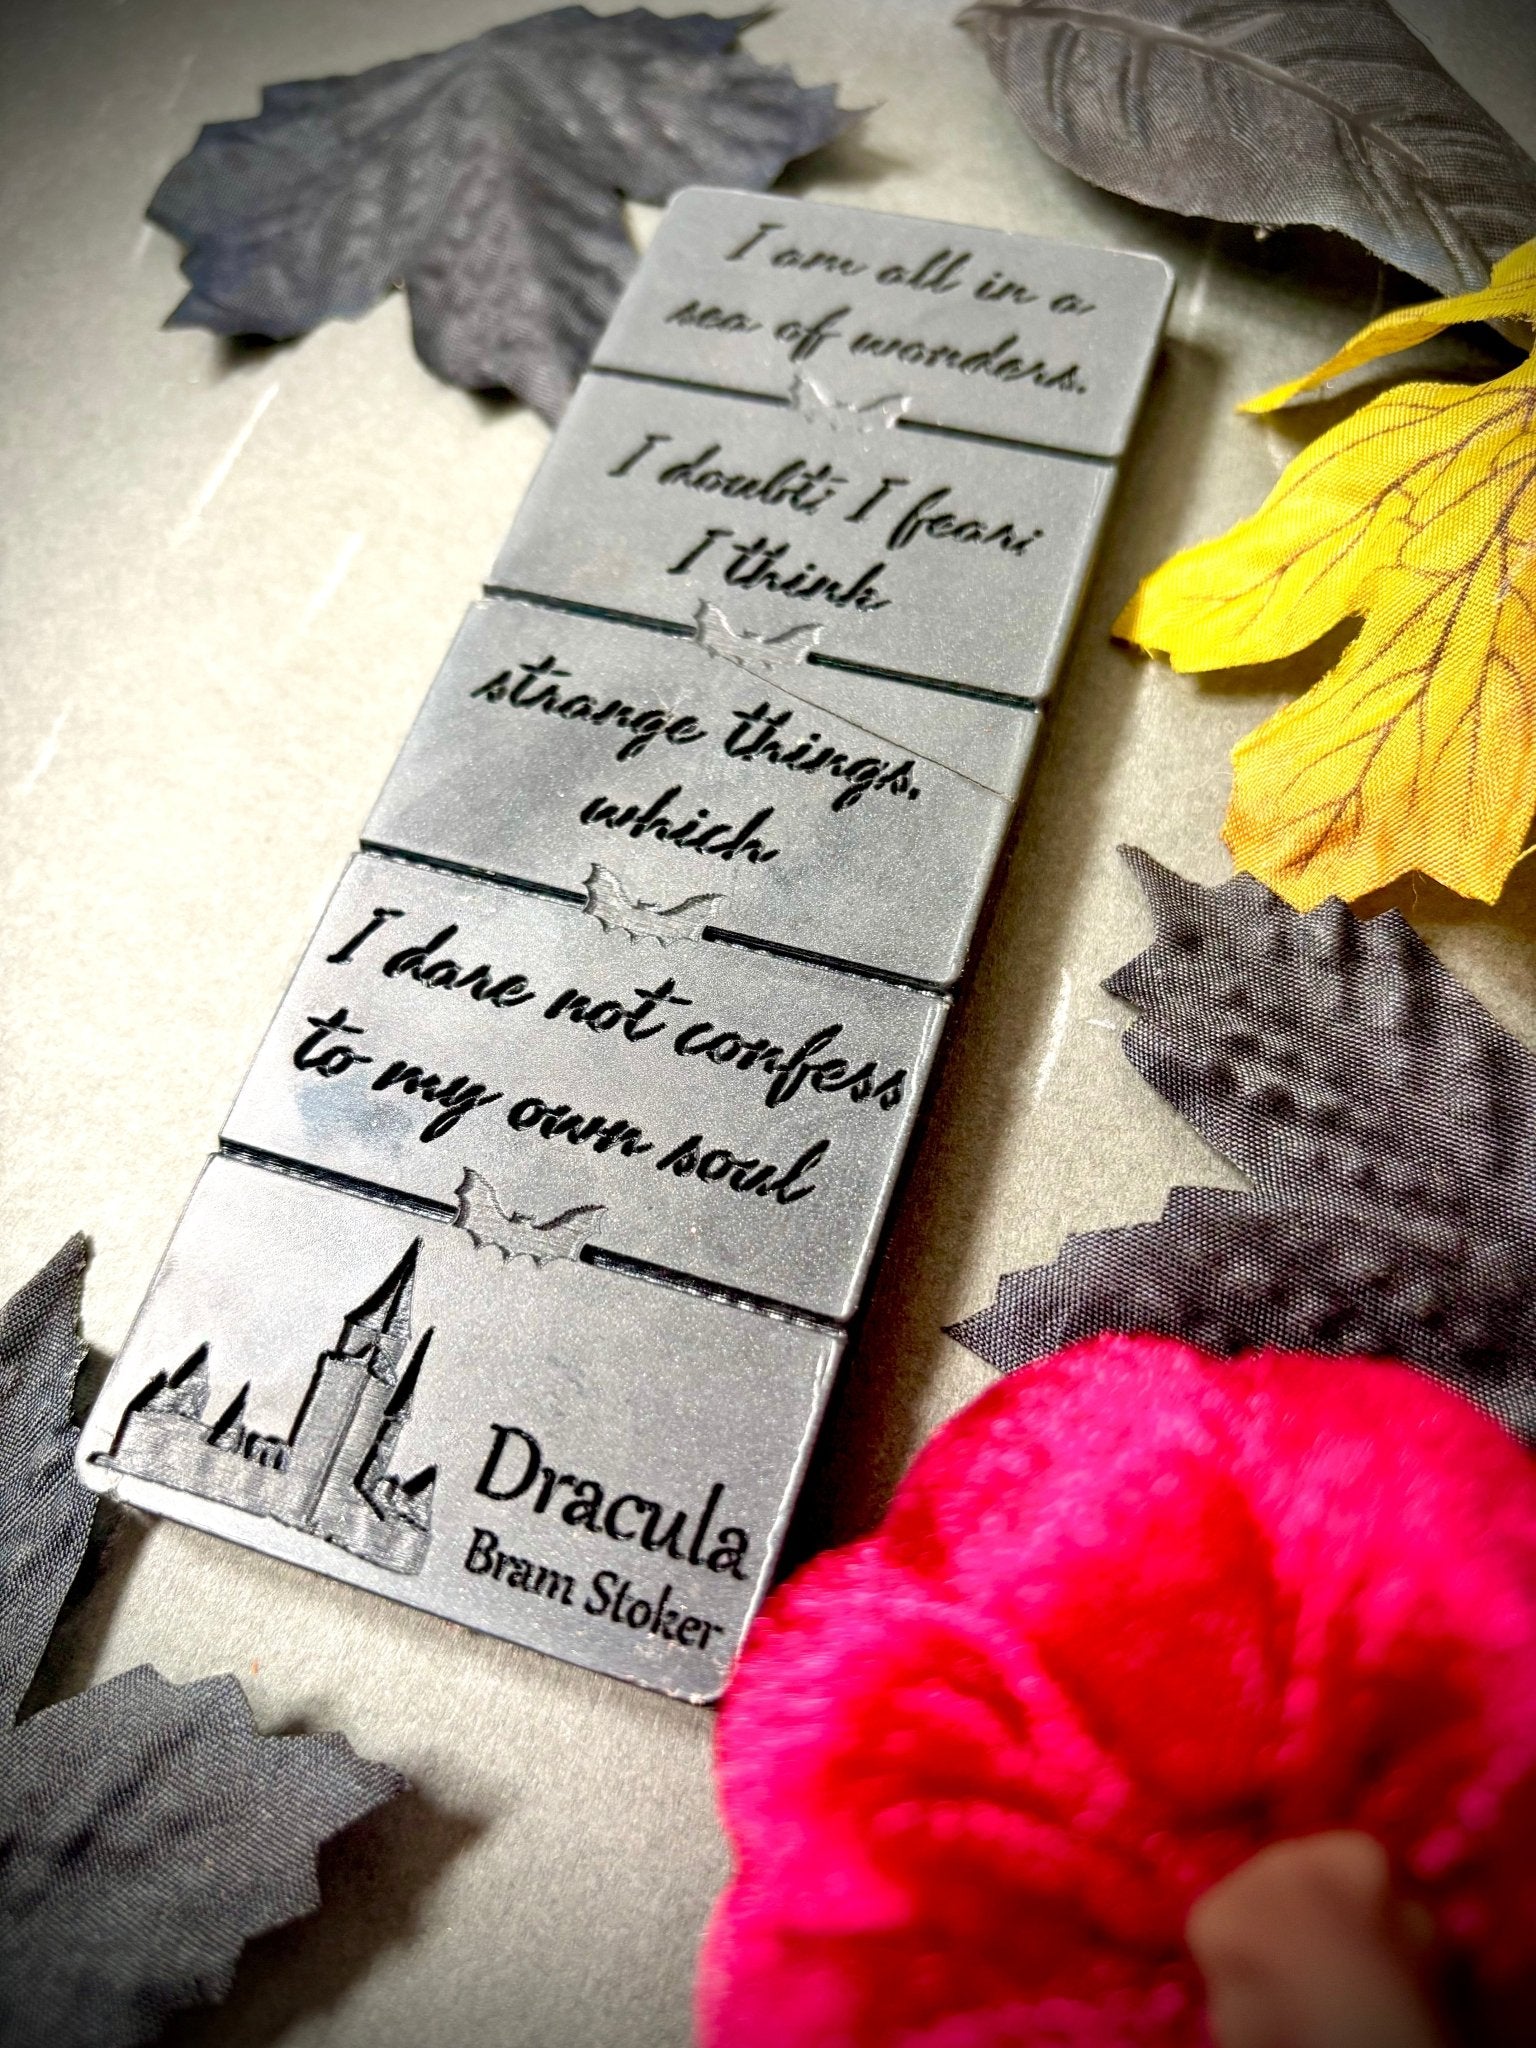 I am all in a
sea of wonders.
I doubt; I fear;
I think
strange things,
which
I dare not confess
to my own soul
Dracula
Bram Stoker